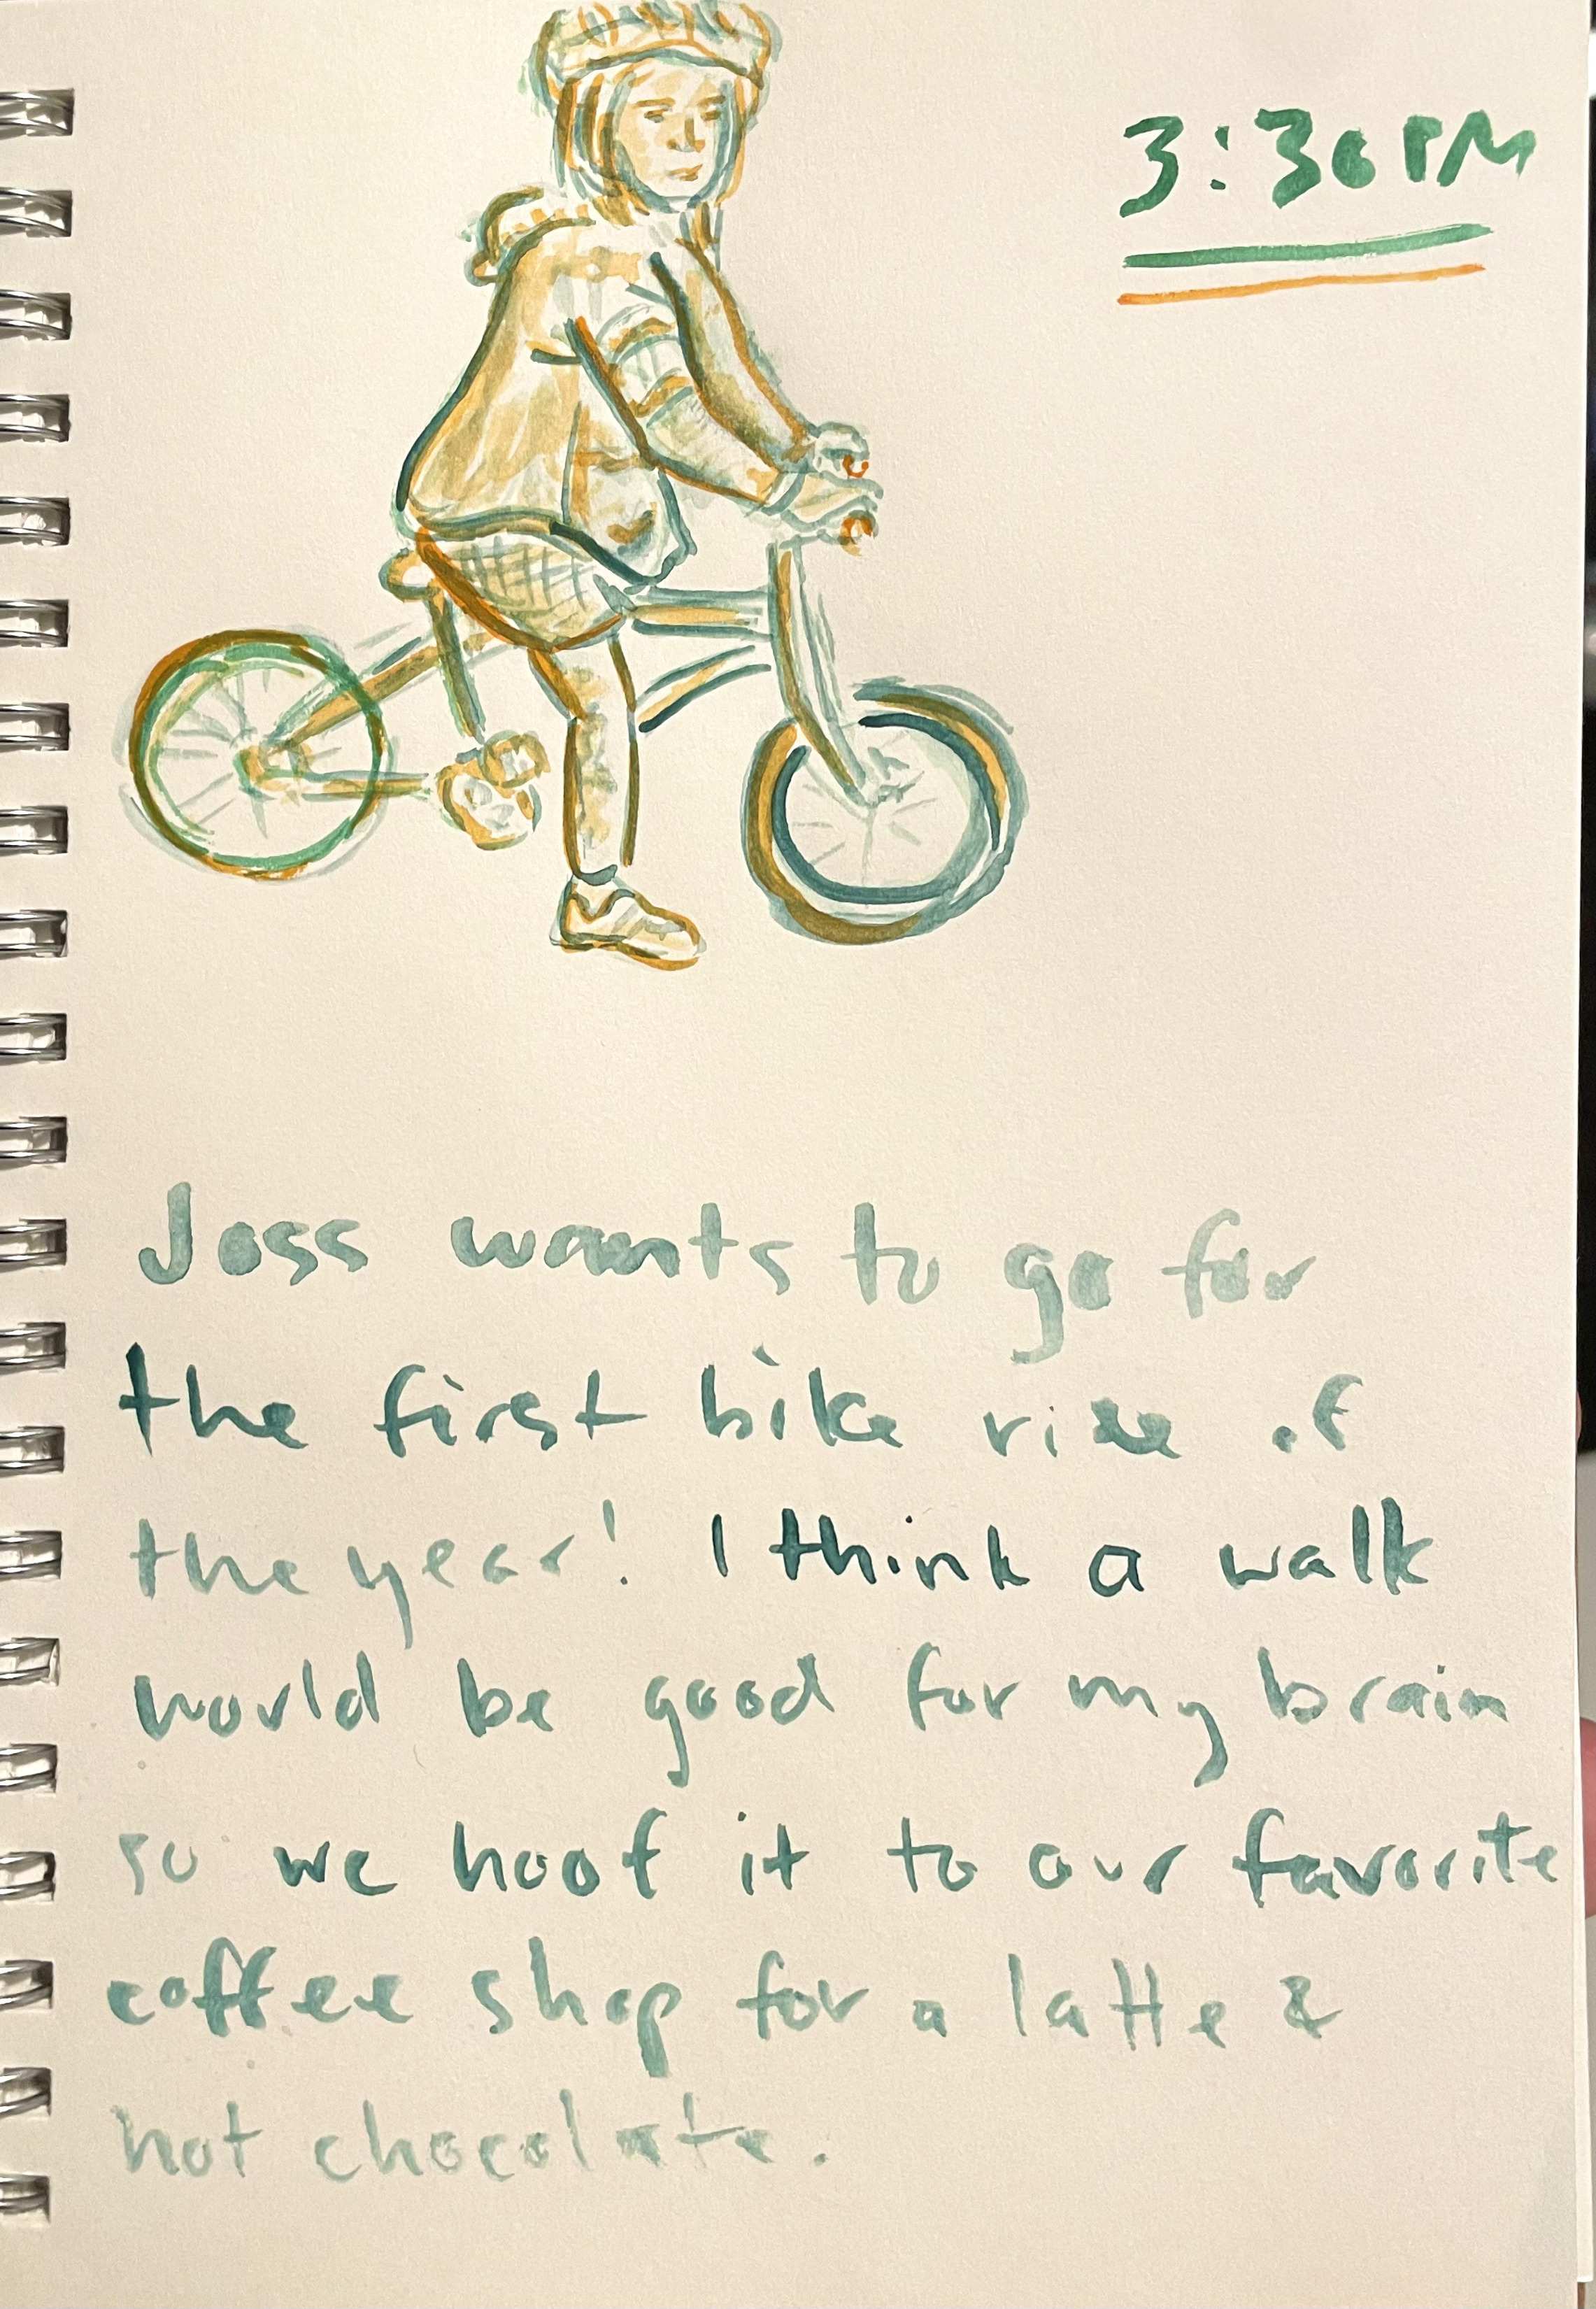 3:30 PM
Joss wants to go for
the first bike ride of
the year! I think a walk
would be good for my brain
so we hoof it to our favorite
coffee shop for a latte &
hot chocolate.